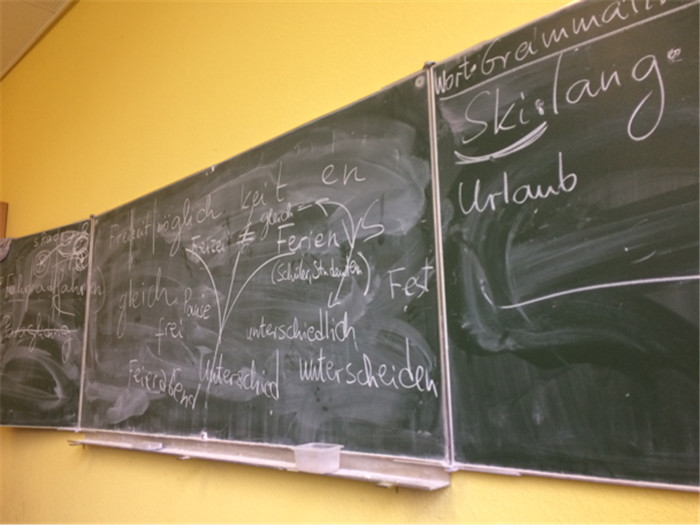 Fahrradfahren
Freizeit möglich keit en
Ferien
≠
gleich
Ferien VS
(Schüler, Studenten)
Fest
gleich
Pause
frei
unterschiedlich
Feierabend
Unterschied
unterscheiden
Wort. Grammatik
Ski. lang.
Urlaub